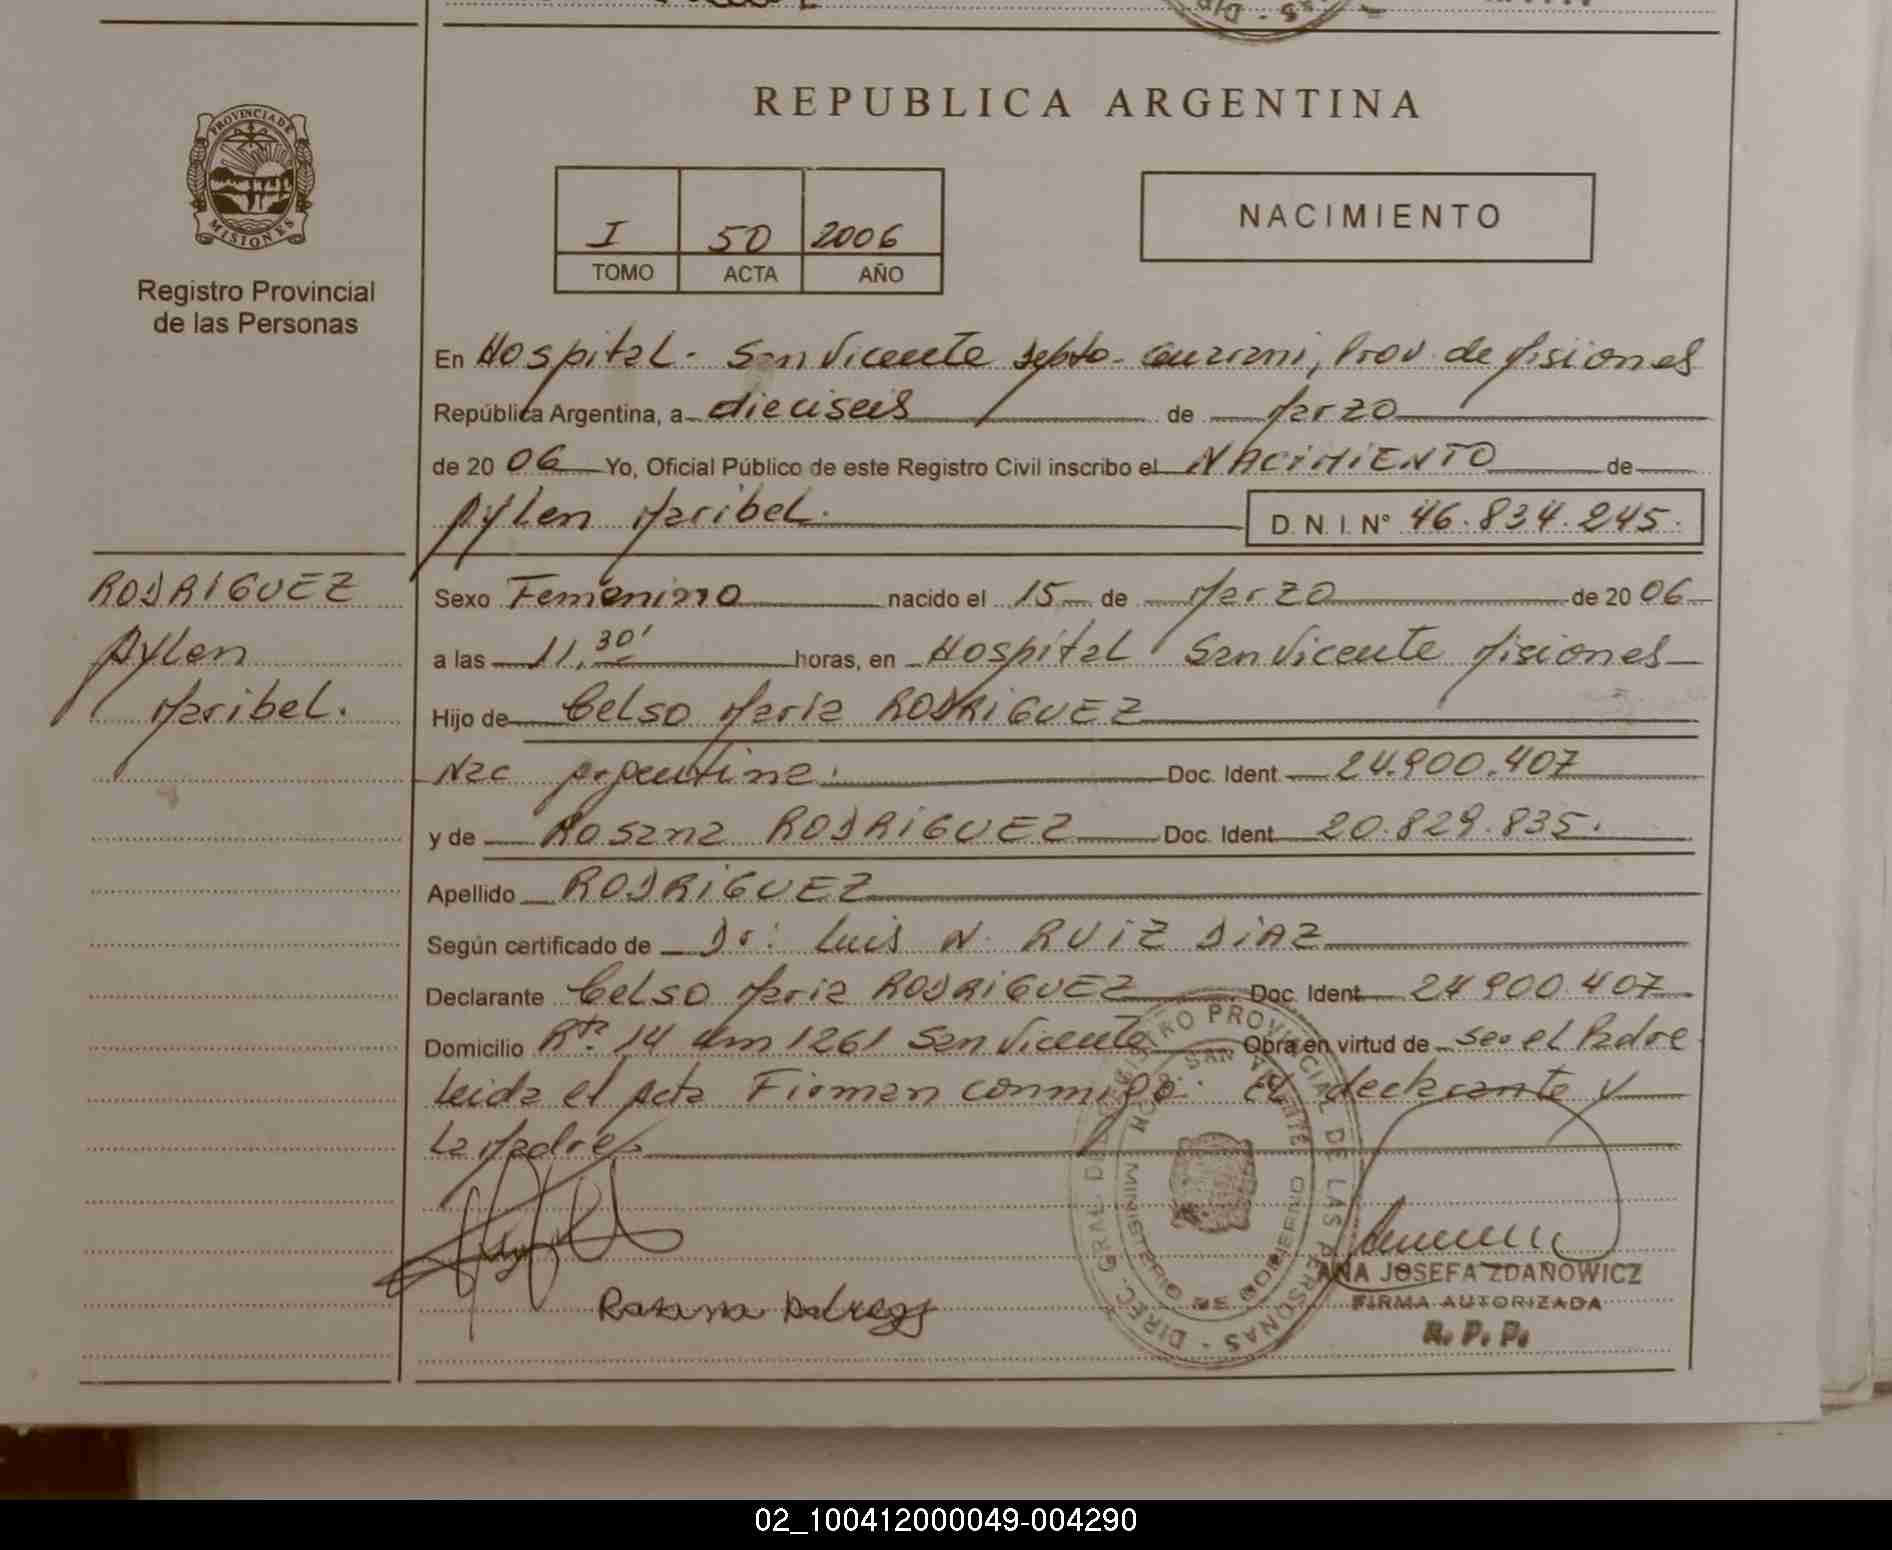 REPUBLICA ARGENTINA
PROVINCIA DE
MISIONES
Registro Provincial
de las Personas
I 50 2006
TOMO ACTA AÑO
NACIMIENTO
En Hospital - San Vicente Depto - Guarani, Prov. de Misiones
República Argentina, a dieciseis de Marzo
de 20 06 Yo, Oficial Público de este Registro Civil inscribo el NACIMIENTO de
Aylen Maribel. D. N. I. N° 46.834.245.
RODRIGUEZ
Aylen
Maribel.
Sexo Femenino nacido el 15 de Marzo de 20 06
a las 11,30' horas, en Hospital San Vicente Misiones
Hijo de Celso Maria RODRIGUEZ
Nac Argentina. Doc. Ident. 24.900.407
y de Rosana RODRIGUEZ Doc. Ident. 20.829.835.
Apellido RODRIGUEZ
Según certificado de Dr: Luis N. RUIZ DIAZ
Declarante Celso Maria RODRIGUEZ Doc. Ident. 24 900 407
Domicilio Rta. 14 Km 1261 San Vicente Obra en virtud de ser el Padre
Leida el Acta Firman conmigo: El declarante y
La Madre
DIREC. GRAL. DEL REGISTRO PROVINCIAL DE LAS PERSONAS
SAN VICENTE
MINISTERIO DE GOBIERNO
Rosana
ANA JOSEFA ZDANOWICZ
FIRMA AUTORIZADA
R. P. P.
02_100412000049-004290